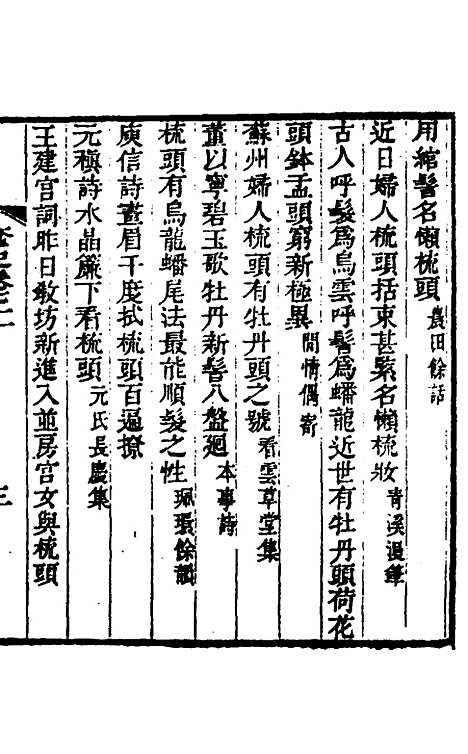 用綰髻名懶梳頭 農田餘話
近日婦人梳頭括束甚緊名懶梳妝 青溪漫筆
古人呼髮爲烏雲呼髻爲蟠龍近世有牡丹頭荷花
頭鉢盂頭窮新極異 閒情偶寄
蘇州婦人梳頭有牡丹頭之號 看雲草堂集
董以寧碧玉歌牡丹新髻八盤廻 本事詩
梳頭有烏龍蟠尾法最能順髮之性 珮環餘韻
庾信詩畫眉千度拭梳頭百遍撩
元稹詩水晶簾下看梳頭 元氏長慶集
王建宫詞昨日敢坊新進入並房宫女與梳頭
三